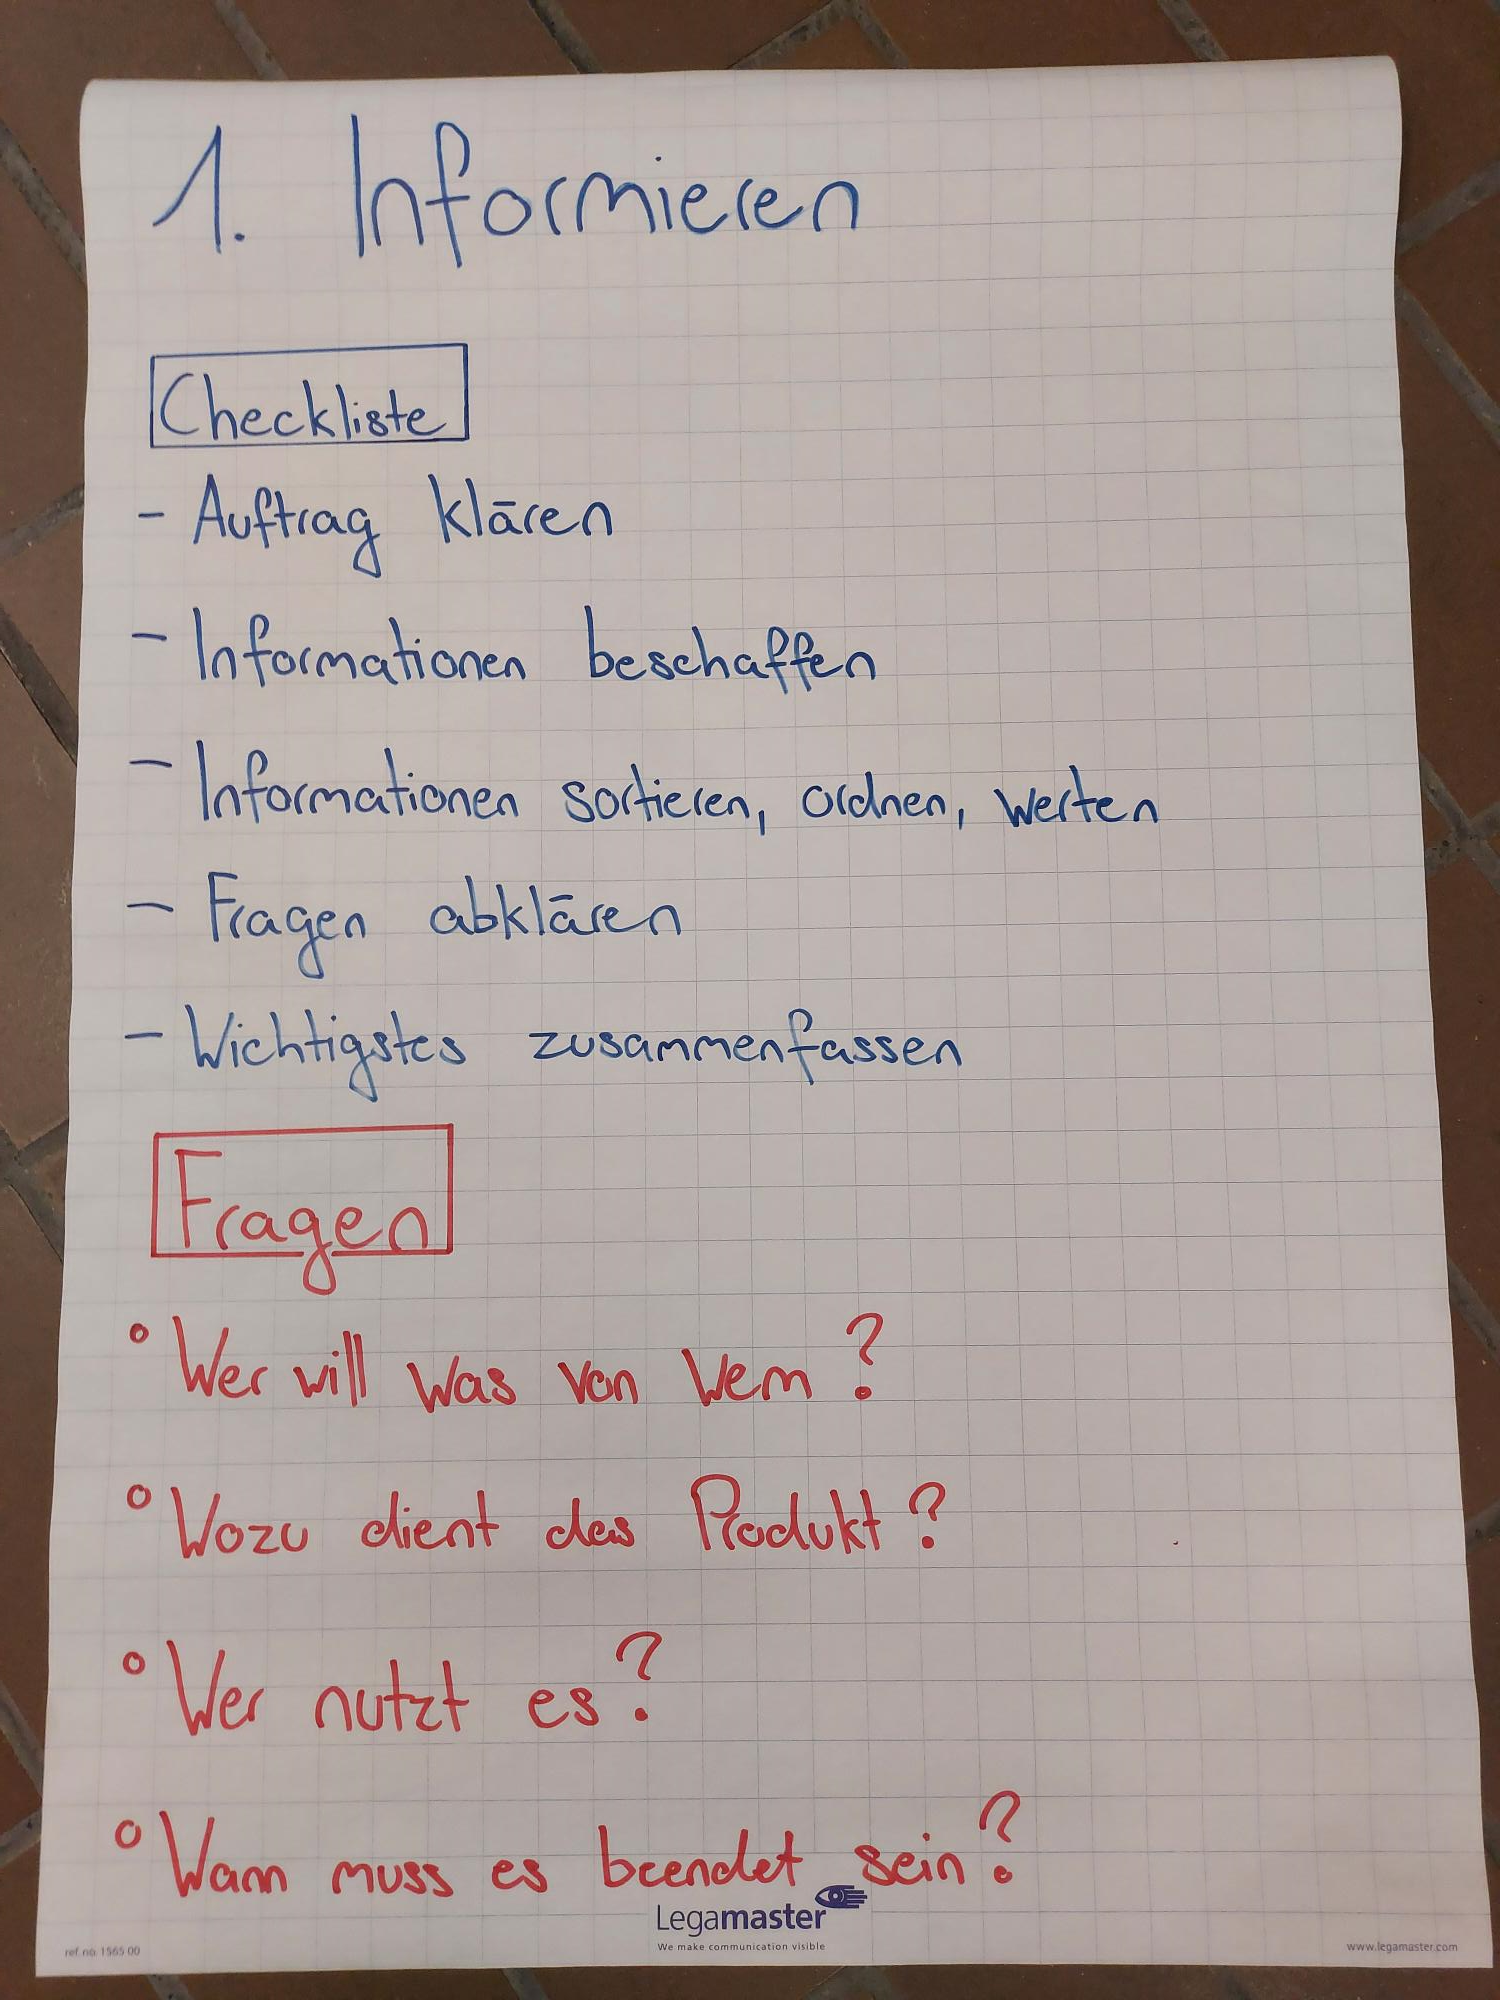 1. Informieren
Checkliste
- Auftrag klären
- Informationen beschaffen
- Informationen sortieren, ordnen, werten
- Fragen abklären
- Wichtigstes zusammenfassen
Fragen
° Wer will was von wem?
° Wozu dient das Produkt?
° Wer nutzt es?
° Wann muss es beendet sein?
Legamaster
We make communication visible
ref. no. 1565 00
www.legamaster.com